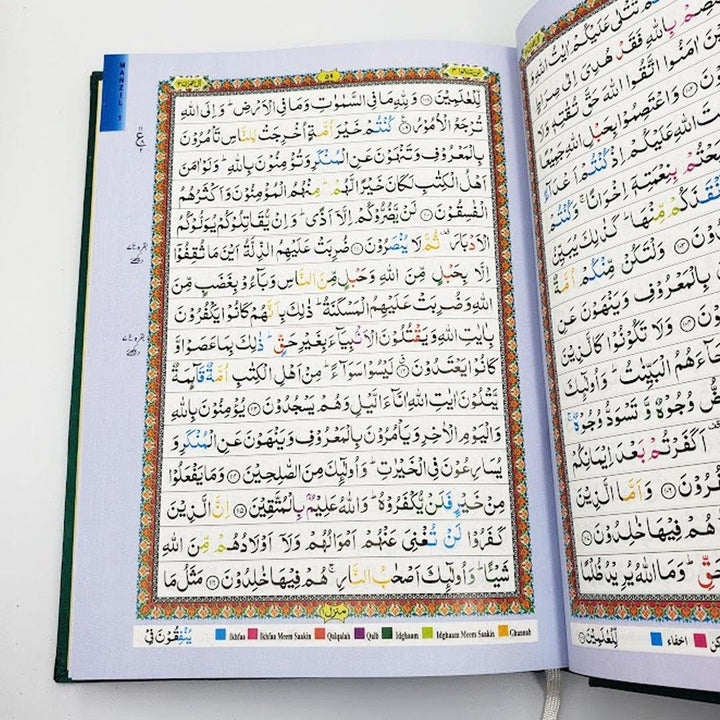 لِّلْعٰلَمِيْنَ ۝١٠٨ وَلِلّٰهِ مَا فِى السَّمٰوٰتِ وَمَا فِى الْاَرْضِ ؕ وَاِلَى اللّٰهِ
تُرْجَعُ الْاُمُوْرُ ۝١٠٩ كُنْتُمْ خَيْرَ اُمَّةٍ اُخْرِجَتْ لِلنَّاسِ تَاْمُرُوْنَ
بِالْمَعْرُوْفِ وَتَنْهَوْنَ عَنِ الْمُنْكَرِ وَتُؤْمِنُوْنَ بِاللّٰهِ ؕ وَلَوْ اٰمَنَ
اَهْلُ الْكِتٰبِ لَكَانَ خَيْرًا لَّهُمْ ؕ مِنْهُمُ الْمُؤْمِنُوْنَ وَاَكْثَرُهُمُ
الْفٰسِقُوْنَ ۝١١٠ لَنْ يَّضُرُّوْكُمْ اِلَّاۤ اَذًى ؕ وَاِنْ يُّقَاتِلُوْكُمْ يُوَلُّوْكُمُ
الْاَدْبَارَ ۫ ثُمَّ لَا يُنْصَرُوْنَ ۝١١١ ضُرِبَتْ عَلَيْهِمُ الذِّلَّةُ اَيْنَ مَا ثُقِفُوْۤا
اِلَّا بِحَبْلٍ مِّنَ اللّٰهِ وَحَبْلٍ مِّنَ النَّاسِ وَبَآءُوْ بِغَضَبٍ مِّنَ
اللّٰهِ وَضُرِبَتْ عَلَيْهِمُ الْمَسْكَنَةُ ؕ ذٰلِكَ بِاَنَّهُمْ كَانُوْا يَكْفُرُوْنَ
بِاٰيٰتِ اللّٰهِ وَيَقْتُلُوْنَ الْاَنْۢبِيَآءَ بِغَيْرِ حَقٍّ ؕ ذٰلِكَ بِمَا عَصَوْا وَّ
كَانُوْا يَعْتَدُوْنَ ۝١١٢ لَيْسُوْا سَوَآءً ؕ مِنْ اَهْلِ الْكِتٰبِ اُمَّةٌ قَآئِمَةٌ
يَّتْلُوْنَ اٰيٰتِ اللّٰهِ اٰنَآءَ الَّيْلِ وَهُمْ يَسْجُدُوْنَ ۝١١٣ يُؤْمِنُوْنَ بِاللّٰهِ
وَالْيَوْمِ الْاٰخِرِ وَيَاْمُرُوْنَ بِالْمَعْرُوْفِ وَيَنْهَوْنَ عَنِ الْمُنْكَرِ وَ
يُسَارِعُوْنَ فِى الْخَيْرٰتِ ؕ وَاُولٰٓئِكَ مِنَ الصّٰلِحِيْنَ ۝١١٤ وَمَا يَفْعَلُوْا
مِنْ خَيْرٍ فَلَنْ يُّكْفَرُوْهُ ؕ وَاللّٰهُ عَلِيْمٌۢ بِالْمُتَّقِيْنَ ۝١١٥ اِنَّ الَّذِيْنَ
كَفَرُوْا لَنْ تُغْنِىَ عَنْهُمْ اَمْوَالُهُمْ وَلَاۤ اَوْلَادُهُمْ مِّنَ اللّٰهِ
شَيْـًٔا ؕ وَاُولٰٓئِكَ اَصْحٰبُ النَّارِ ۚ هُمْ فِيْهَا خٰلِدُوْنَ ۝١١٦ مَثَلُ مَا
يُنْفِقُوْنَ فِىْ
Ikhfaa Ikhfaa Meem Saakin Qalqalah Qalb Idghaam Idghaam Meem Saakin Ghunnah
MANZIL 1
منزل ١
تُتْلٰى عَلَيْكُمْ اٰيٰتُ اللّٰهِ
بِاللّٰهِ فَقَدْ هُدِىَ اِلٰى صِرَاطٍ
اٰمَنُوا اتَّقُوا اللّٰهَ حَقَّ تُقٰتِهٖ وَلَا
وَاعْتَصِمُوْا بِحَبْلِ اللّٰهِ جَمِيْعًا
اللّٰهِ عَلَيْكُمْ اِذْ كُنْتُمْ اَعْدَآءً
بِنِعْمَتِهٖۤ اِخْوَانًا ۚ وَكُنْتُمْ
مِّنْهَا ؕ كَذٰلِكَ يُبَيِّنُ
وَلْتَكُنْ مِّنْكُمْ اُمَّةٌ
بِالْمَعْرُوْفِ وَيَنْهَوْنَ عَنِ
وَلَا تَكُوْنُوْا كَالَّذِيْنَ
الْبَيِّنٰتُ ؕ وَاُولٰٓئِكَ
وُجُوْهٌ وَّتَسْوَدُّ وُجُوْهٌ ۚ
اَكَفَرْتُمْ بَعْدَ اِيْمَانِكُمْ
وَاَمَّا الَّذِيْنَ
هُمْ فِيْهَا خٰلِدُوْنَ
وَمَا اللّٰهُ يُرِيْدُ ظُلْمًا
لِّلْعٰلَمِيْنَ
اخفاء